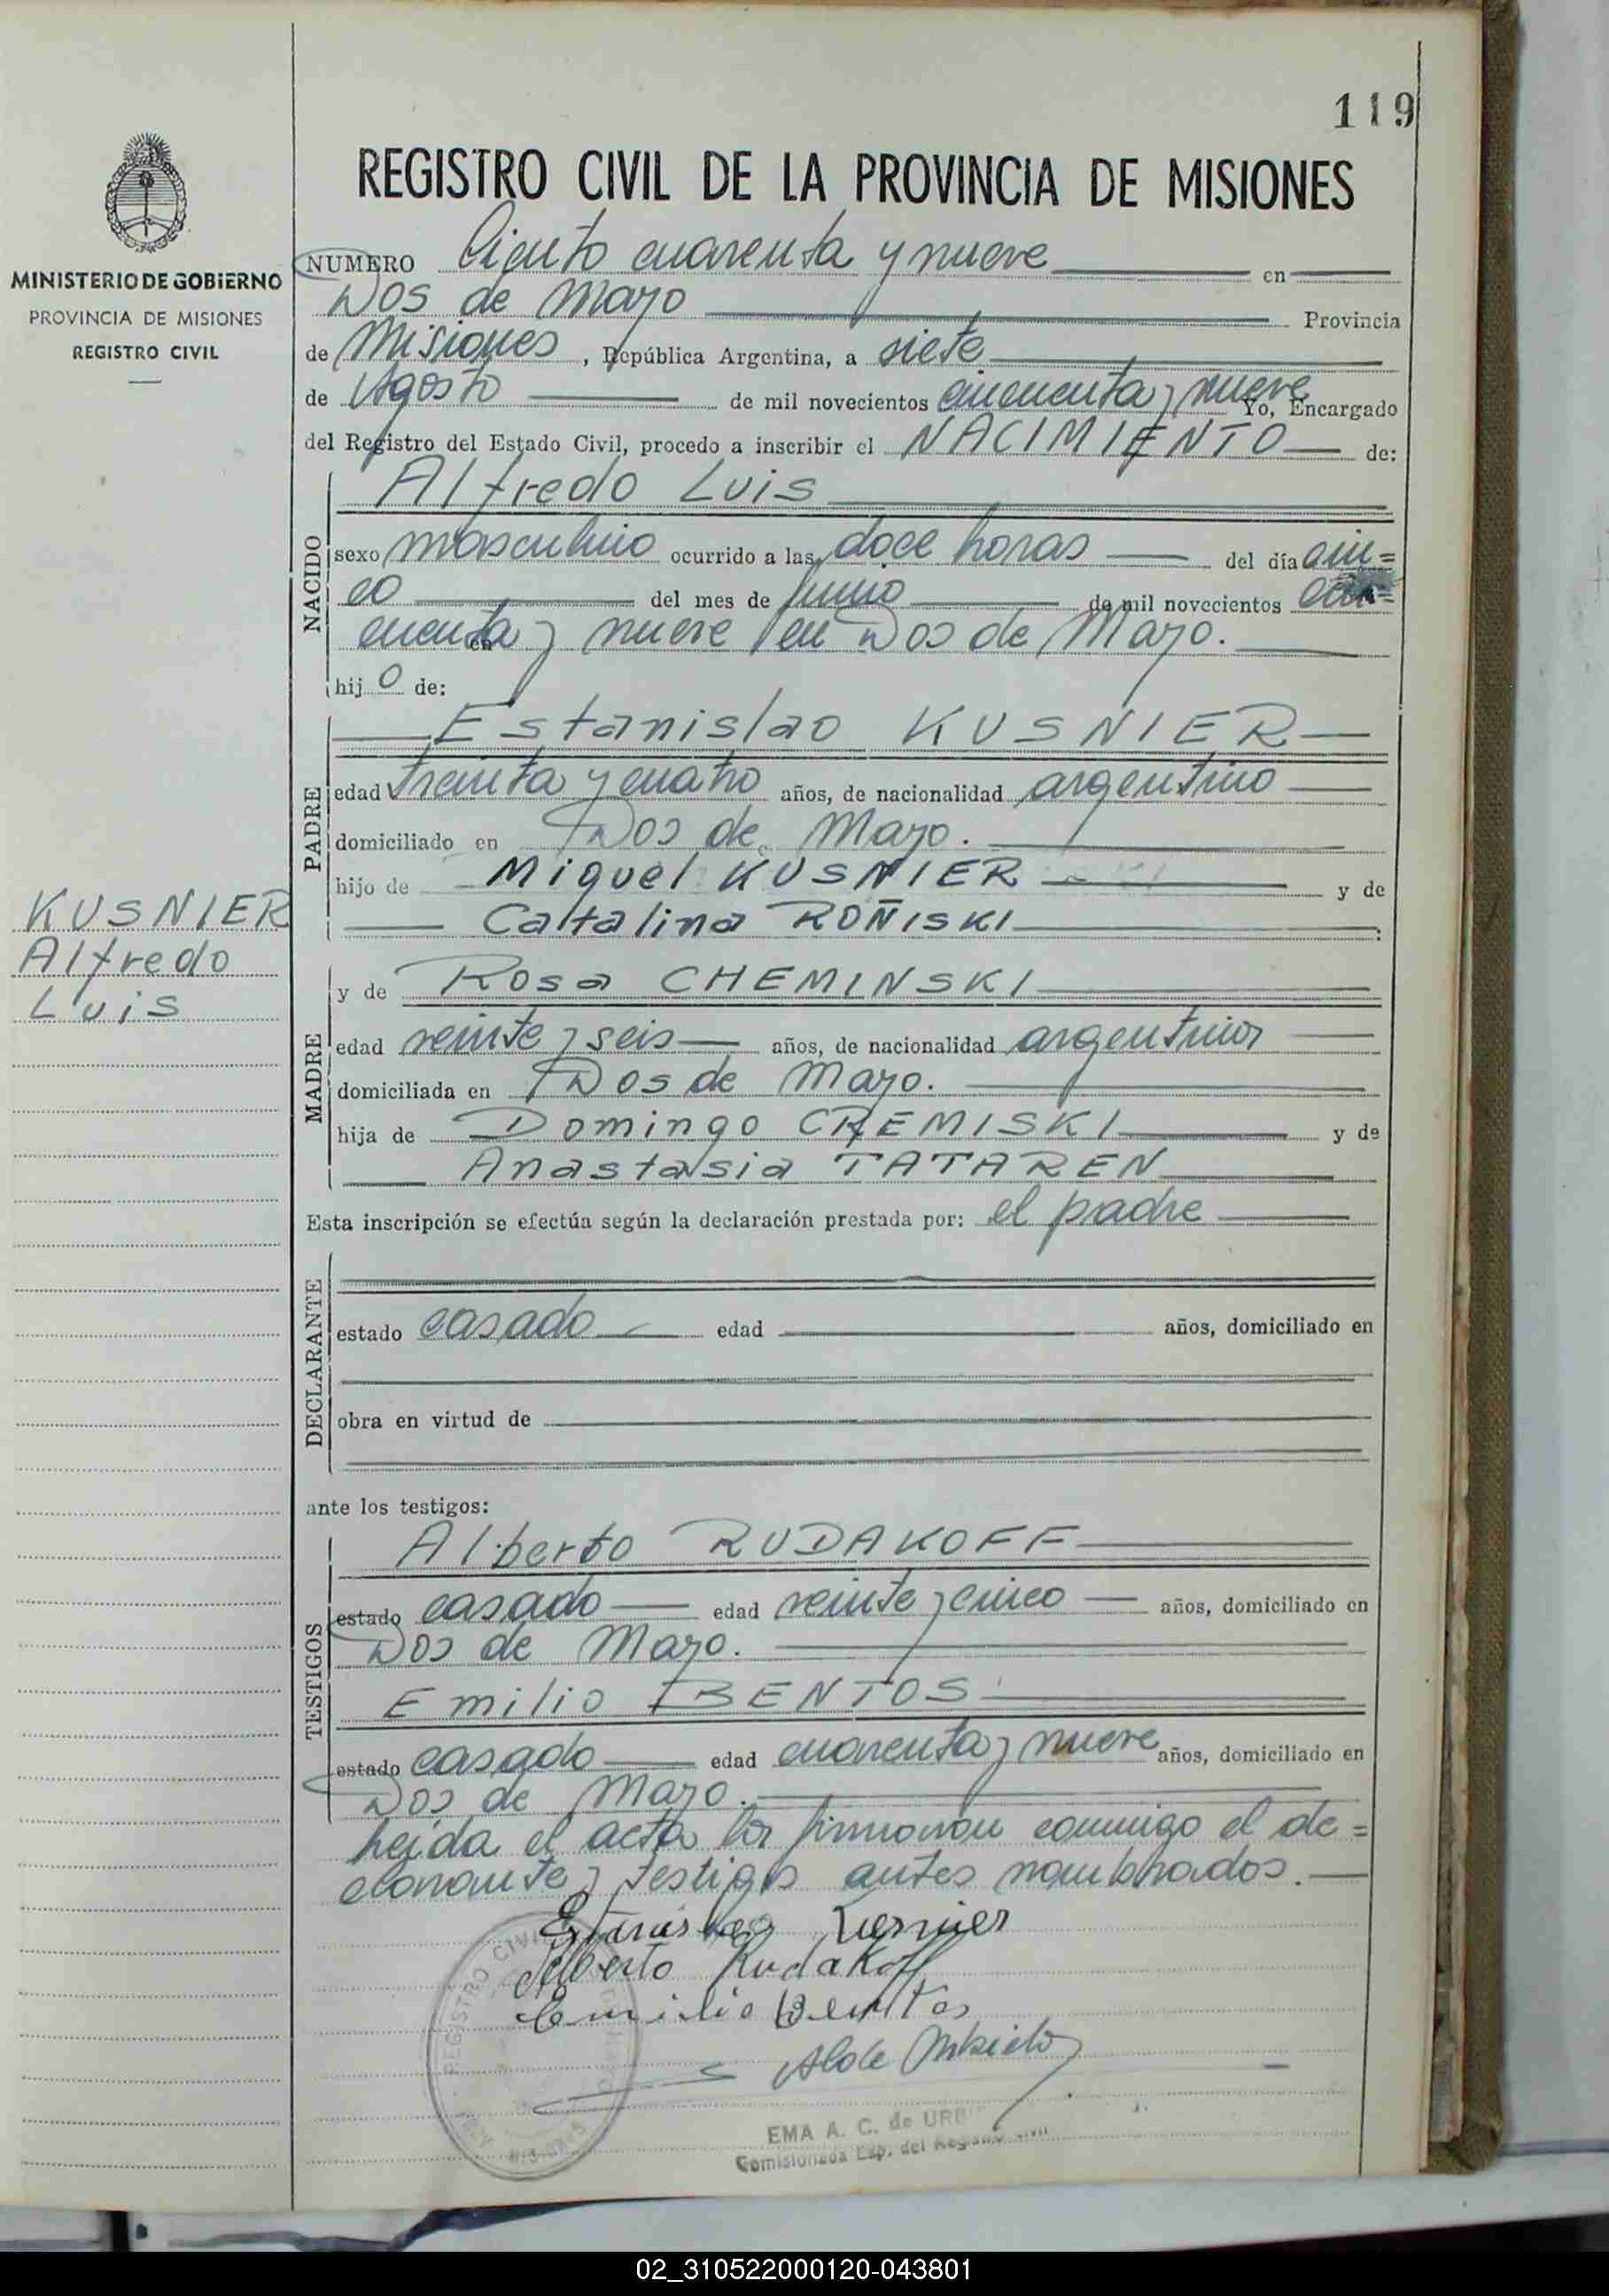 119
REGISTRO CIVIL DE LA PROVINCIA DE MISIONES
MINISTERIO DE GOBIERNO
PROVINCIA DE MISIONES
REGISTRO CIVIL
NUMERO Ciento cuarenta y nueve en
Dos de Mayo Provincia
de Misiones, República Argentina, a siete
de Agosto de mil novecientos cincuenta y nueve Yo, Encargado
del Registro del Estado Civil, procedo a inscribir el NACIMIENTO de:
NACIDO
Alfredo Luis
sexo masculino ocurrido a las doce horas del día cin=
co del mes de Junio de mil novecientos cin=
cuenta y nueve en Dos de Mayo.
hijo de:
PADRE
Estanislao KUSNIER
edad treinta y cuatro años, de nacionalidad argentino
domiciliado en Dos de Mayo.
hijo de Miguel KUSNIER y de
Caltalina ROÑISKI
KUSNIER
Alfredo
Luis
MADRE
y de Rosa CHEMINSKI
edad veinte y seis años, de nacionalidad argentina
domiciliada en Dos de Mayo.
hija de Domingo CREMISKI y de
Anastasia TATAREN
Esta inscripción se efectúa según la declaración prestada por: el padre
DECLARANTE
estado casado edad años, domiciliado en
obra en virtud de
ante los testigos:
TESTIGOS
Alberto RUDAKOFF
estado casado edad veinte y cinco años, domiciliado en
Dos de Mayo.
Emilio BENTOS
estado casado edad cuarenta y nueve años, domiciliado en
Dos de Mayo.
Leída el acta la firmaron conmigo el de=
clarante y testigos antes nombrados.
Estanislao Kusnier
Alberto Rudakoff
Emilio Benitos
REGISTRO CIVIL
EMA A. C. de URB
Comisionada Esp. del Registro Civil
02_310522000120-043801